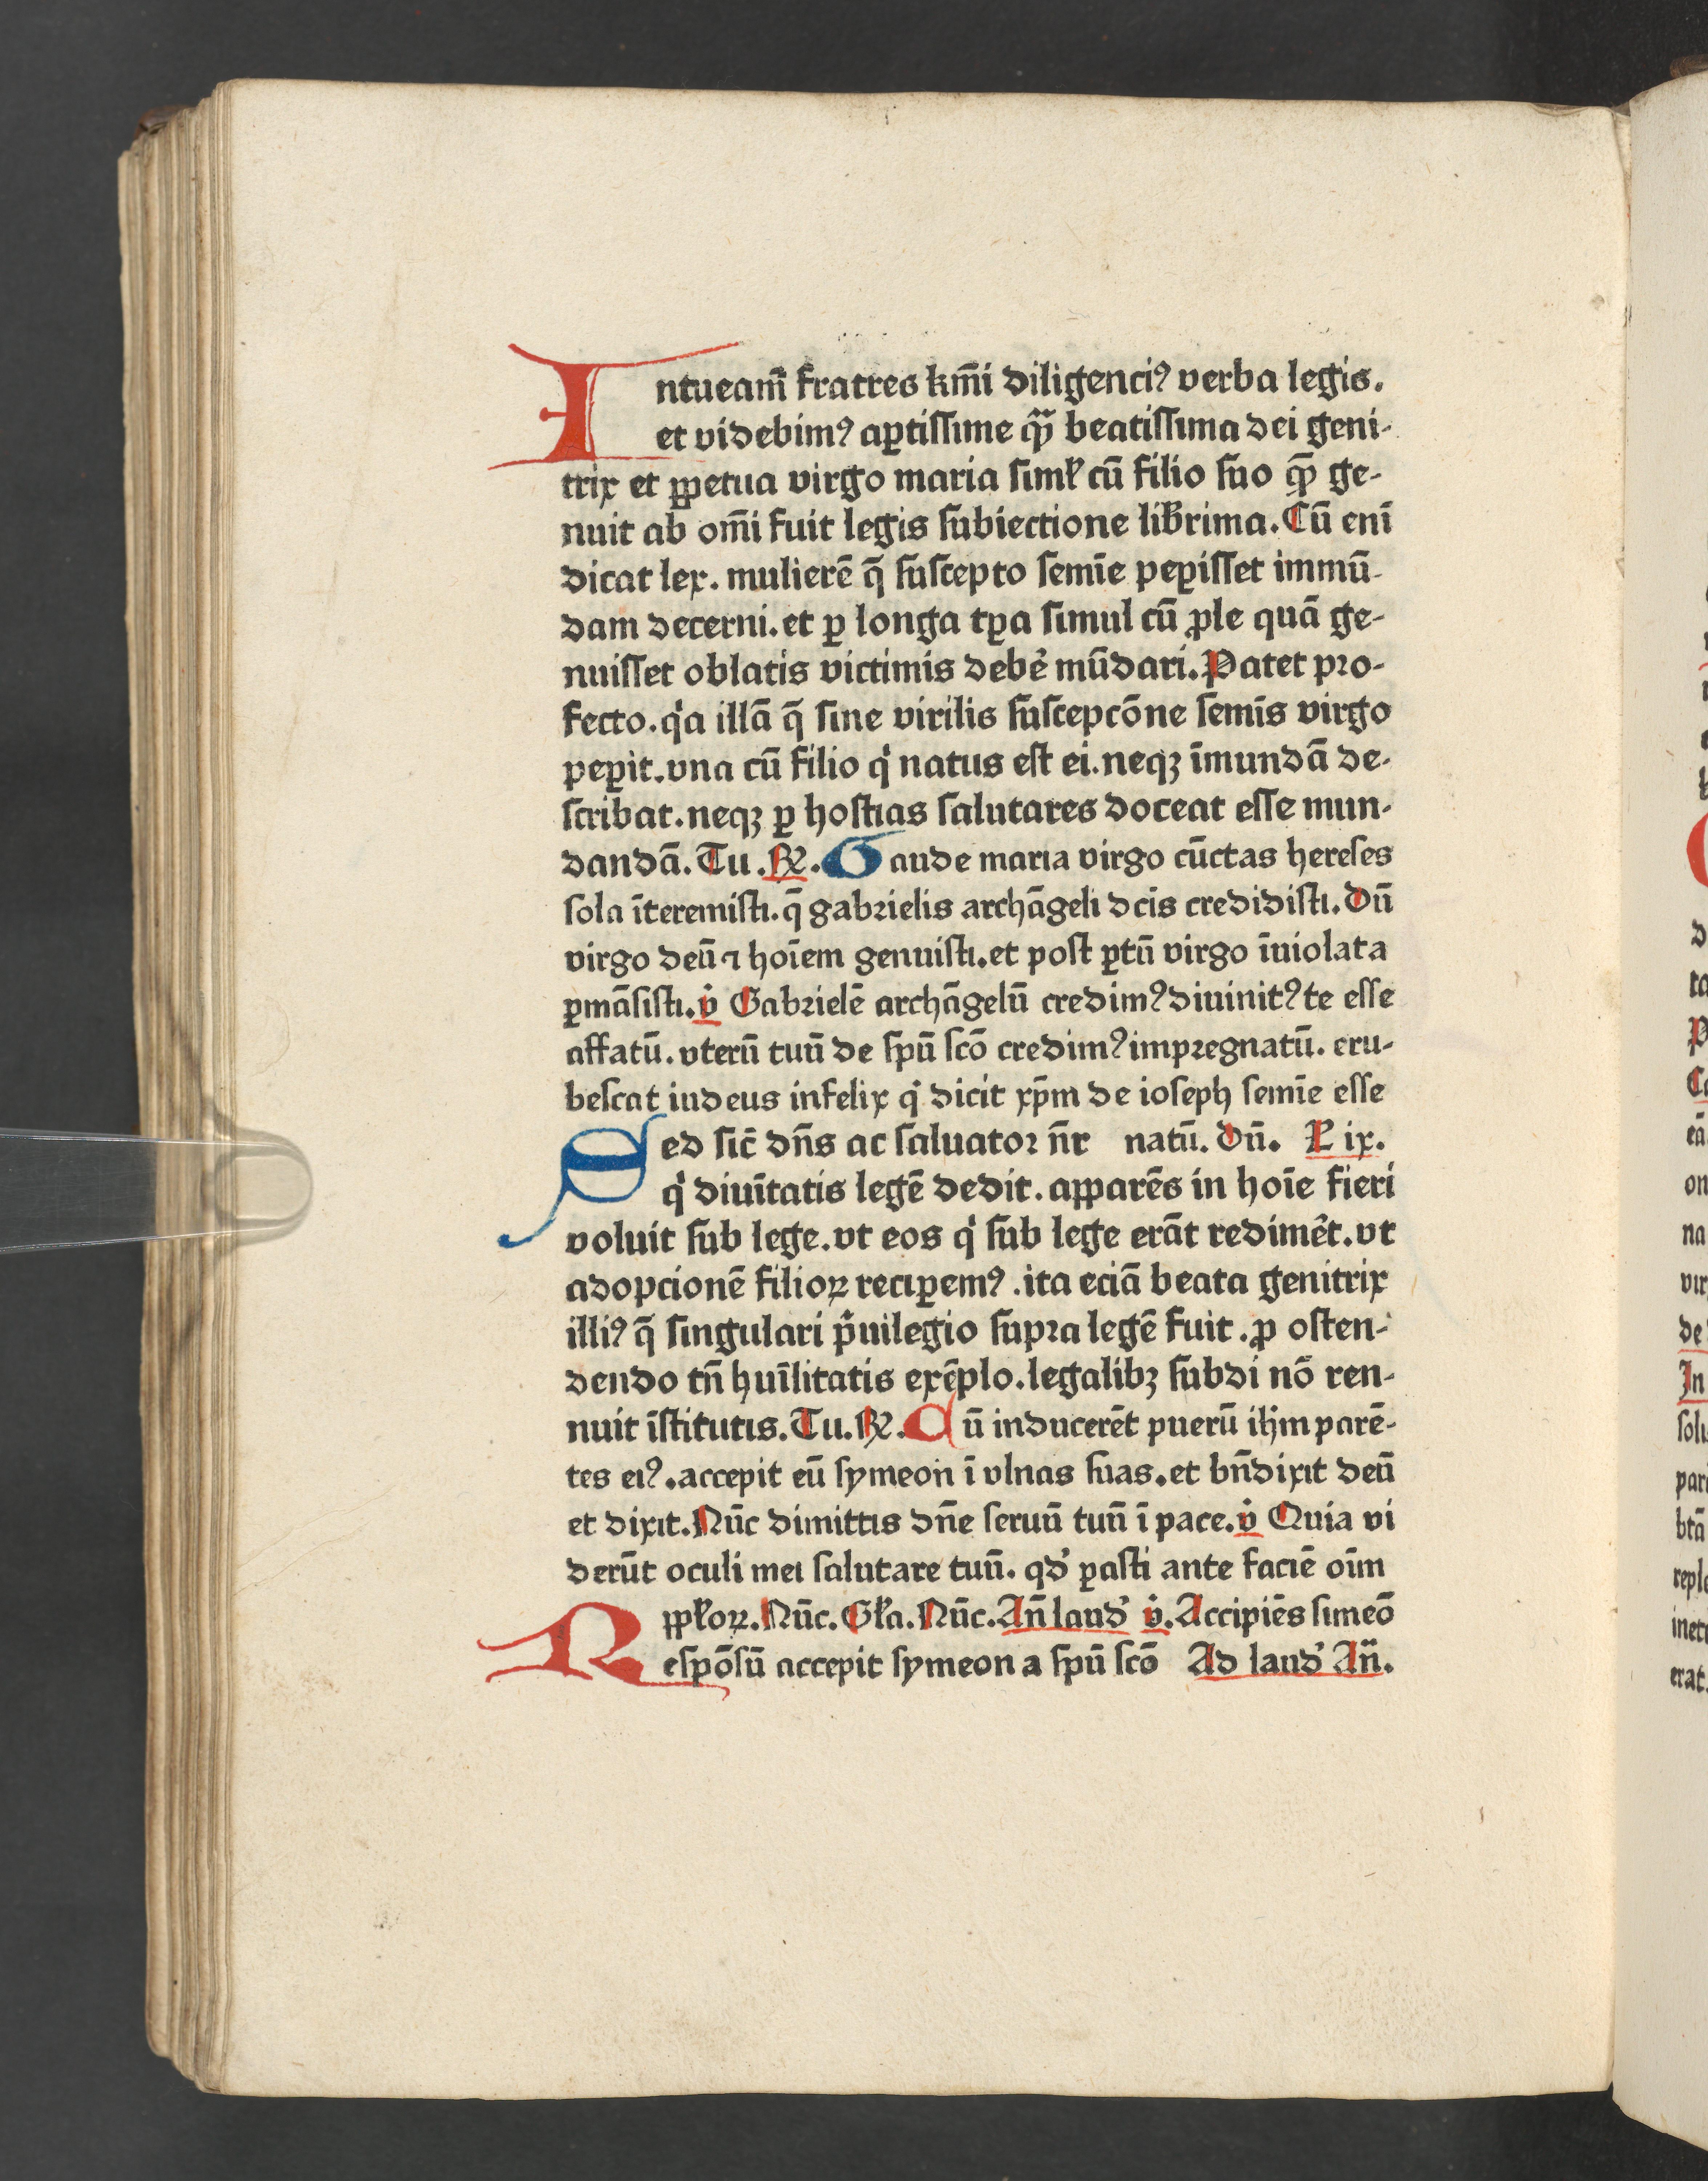 Intueamͬ fratres km̄i diligenciꝰ verba legis.
et videbimꝰ aꝑtissime qͣꝫ beatissima dei geni-
trix et ꝑpetua virgo maria siml̕ cū filio suo quē ge-
nuit ab om̄i fuit legis subiectione libͤrima. Cū enī
dicat lex. mulierē q̄ suscepto semīe peꝑisset immū-
dam decerni. et ꝑ longa tꝑa simul cū ꝓle quā ge-
nuisset oblatis victimis debe᷒ mūdari. Patet pro-
fecto. qͥa illā q̄ sine virilis suscepcōne semīs virgo
peꝑit. vna cū filio qͥ natus est ei. neqꝫ īmundā de-
scribat. neqꝫ ꝑ hostias salutares doceat esse mun-
dandā. Tu. ℟. Gaude maria virgo cūctas hereses
sola īteremisti. q̄ gabrielis archāgeli dcīs credidisti. Dū
virgo deū ⁊ hoīem genuisti. et post ꝑtū virgo īuiolata
ꝑmāsisti. ℣ Gabrielē archāgelū credimꝰ diuinitꝰ te esse
affatū. vterū tuū de spū scō credimꝰ impregnatū. eru-
bescat iudeus infelix qͥ dicit xp̄m de ioseph semīe esse
Sed sic̄ dn̄s ac saluator n̄r natū. Dū. L̕ ix.
qͥ diuīitatis legē dedit. apparēs in hoīe fieri
voluit sub lege. vt eos qͥ sub lege erāt redime᷒t. vt
adopcionē filioꝝ reciꝑemꝰ. ita eciā beata genitrix
illiꝰ q̄ singulari pͥuilegio supra legē fuit. ꝓ osten-
dendo tn̄ huīlitatis exēplo. legalibꝫ subdi nō ren-
nuit īstitutis. Tu. ℟. Cū inducerēt puerū ihm̄ parē-
tes eiꝰ. accepit eū symeon ī vlnas suas. et bn̄dixit deū
et dixit. Nūc dimittis dn̄e seruū tuū ī pace. ℣ Quia vi
derūt oculi mei salutare tuū. qd̕ ꝑasti ante faciē oīm
ppl̕oꝝ. Nūc. Gl̕a. Nūc. An̄ laud̕ ℣. Accipiēs simeō
Respōsū accepit symeon a spū scō Ad laud̕ An̄.